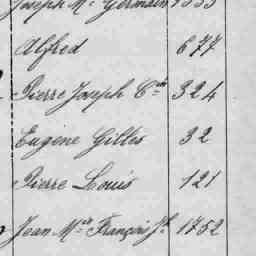 Joseph Mie Germain 1333
Alfred 677
Pierre Joseph Cin 324
Eugène Gilles 32
Pierre Louis 121
Jean Mie François Jh 1752